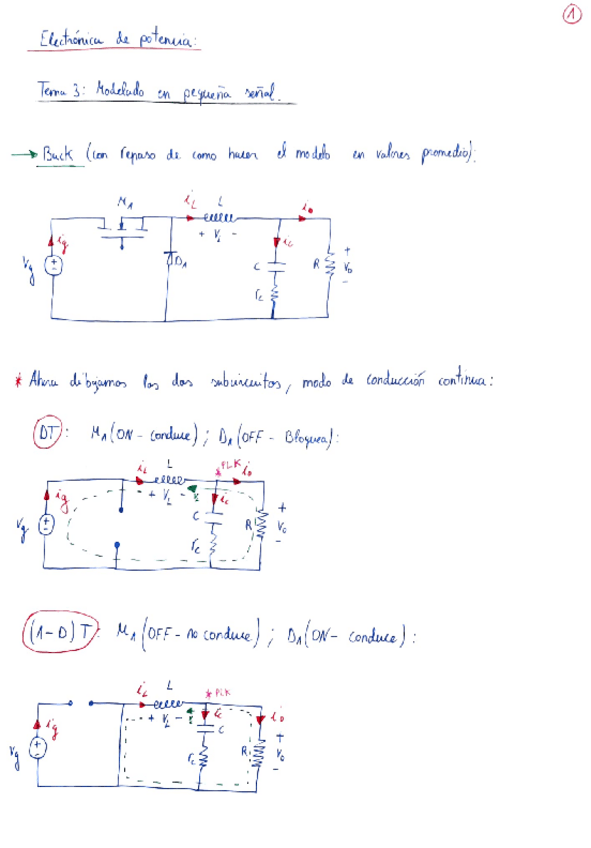 1
Electrónica de potencia:
Tema 3: Modelado en pequeña señal.
→ Buck (con repaso de como hacer el modelo en valores promedio):
M1 iL L io
+ VL -
ig iC
Vg D1 C R + Vo -
rC
* Ahora dibujamos los dos subcircuitos, modo de conducción continua:
DT: M1 (ON - conduce) ; D1 (OFF - Bloquea):
iL L *PLK io
ig + VL - iC
Vg C R + Vo -
rC
(1-D)T: M1 (OFF - no conduce) ; D1 (ON - conduce):
iL L *PLK
ig + VL - iC io
Vg C R + Vo -
rC